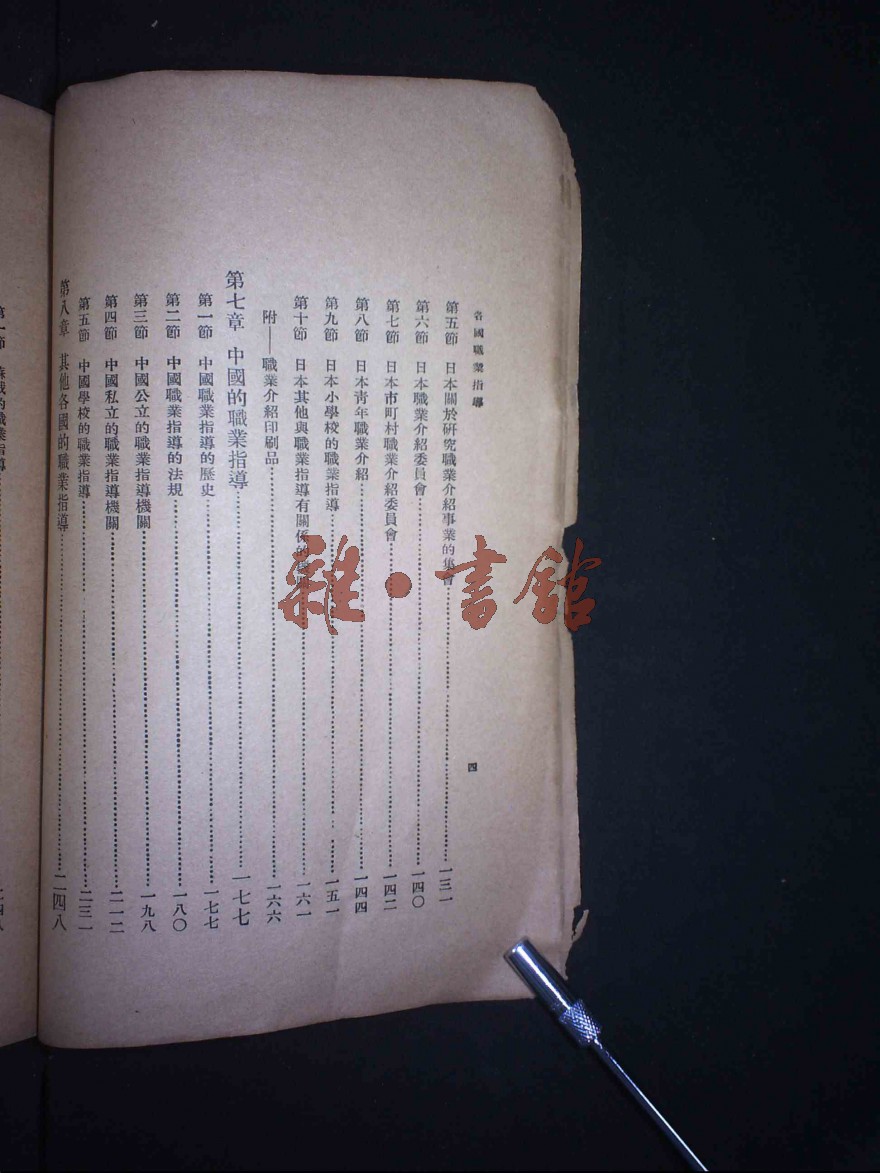 各國職業指導
四
第五節 日本關於研究職業介紹事業的集會……一三一
第六節 日本職業介紹委員會……一四〇
第七節 日本市町村職業介紹委員會……一四二
第八節 日本青年職業介紹……一四四
第九節 日本小學校的職業指導……一五一
第十節 日本其他與職業指導有關係的……一六一
附——職業介紹印刷品……一六六
第七章 中國的職業指導……一七七
第一節 中國職業指導的歷史……一七七
第二節 中國職業指導的法規……一八〇
第三節 中國公立的職業指導機關……一九八
第四節 中國私立的職業指導機關……二一二
第五節 中國學校的職業指導……二三一
第八章 其他各國的職業指導……二四八
第一節 蘇俄的職業指導……二四八
雜·書館